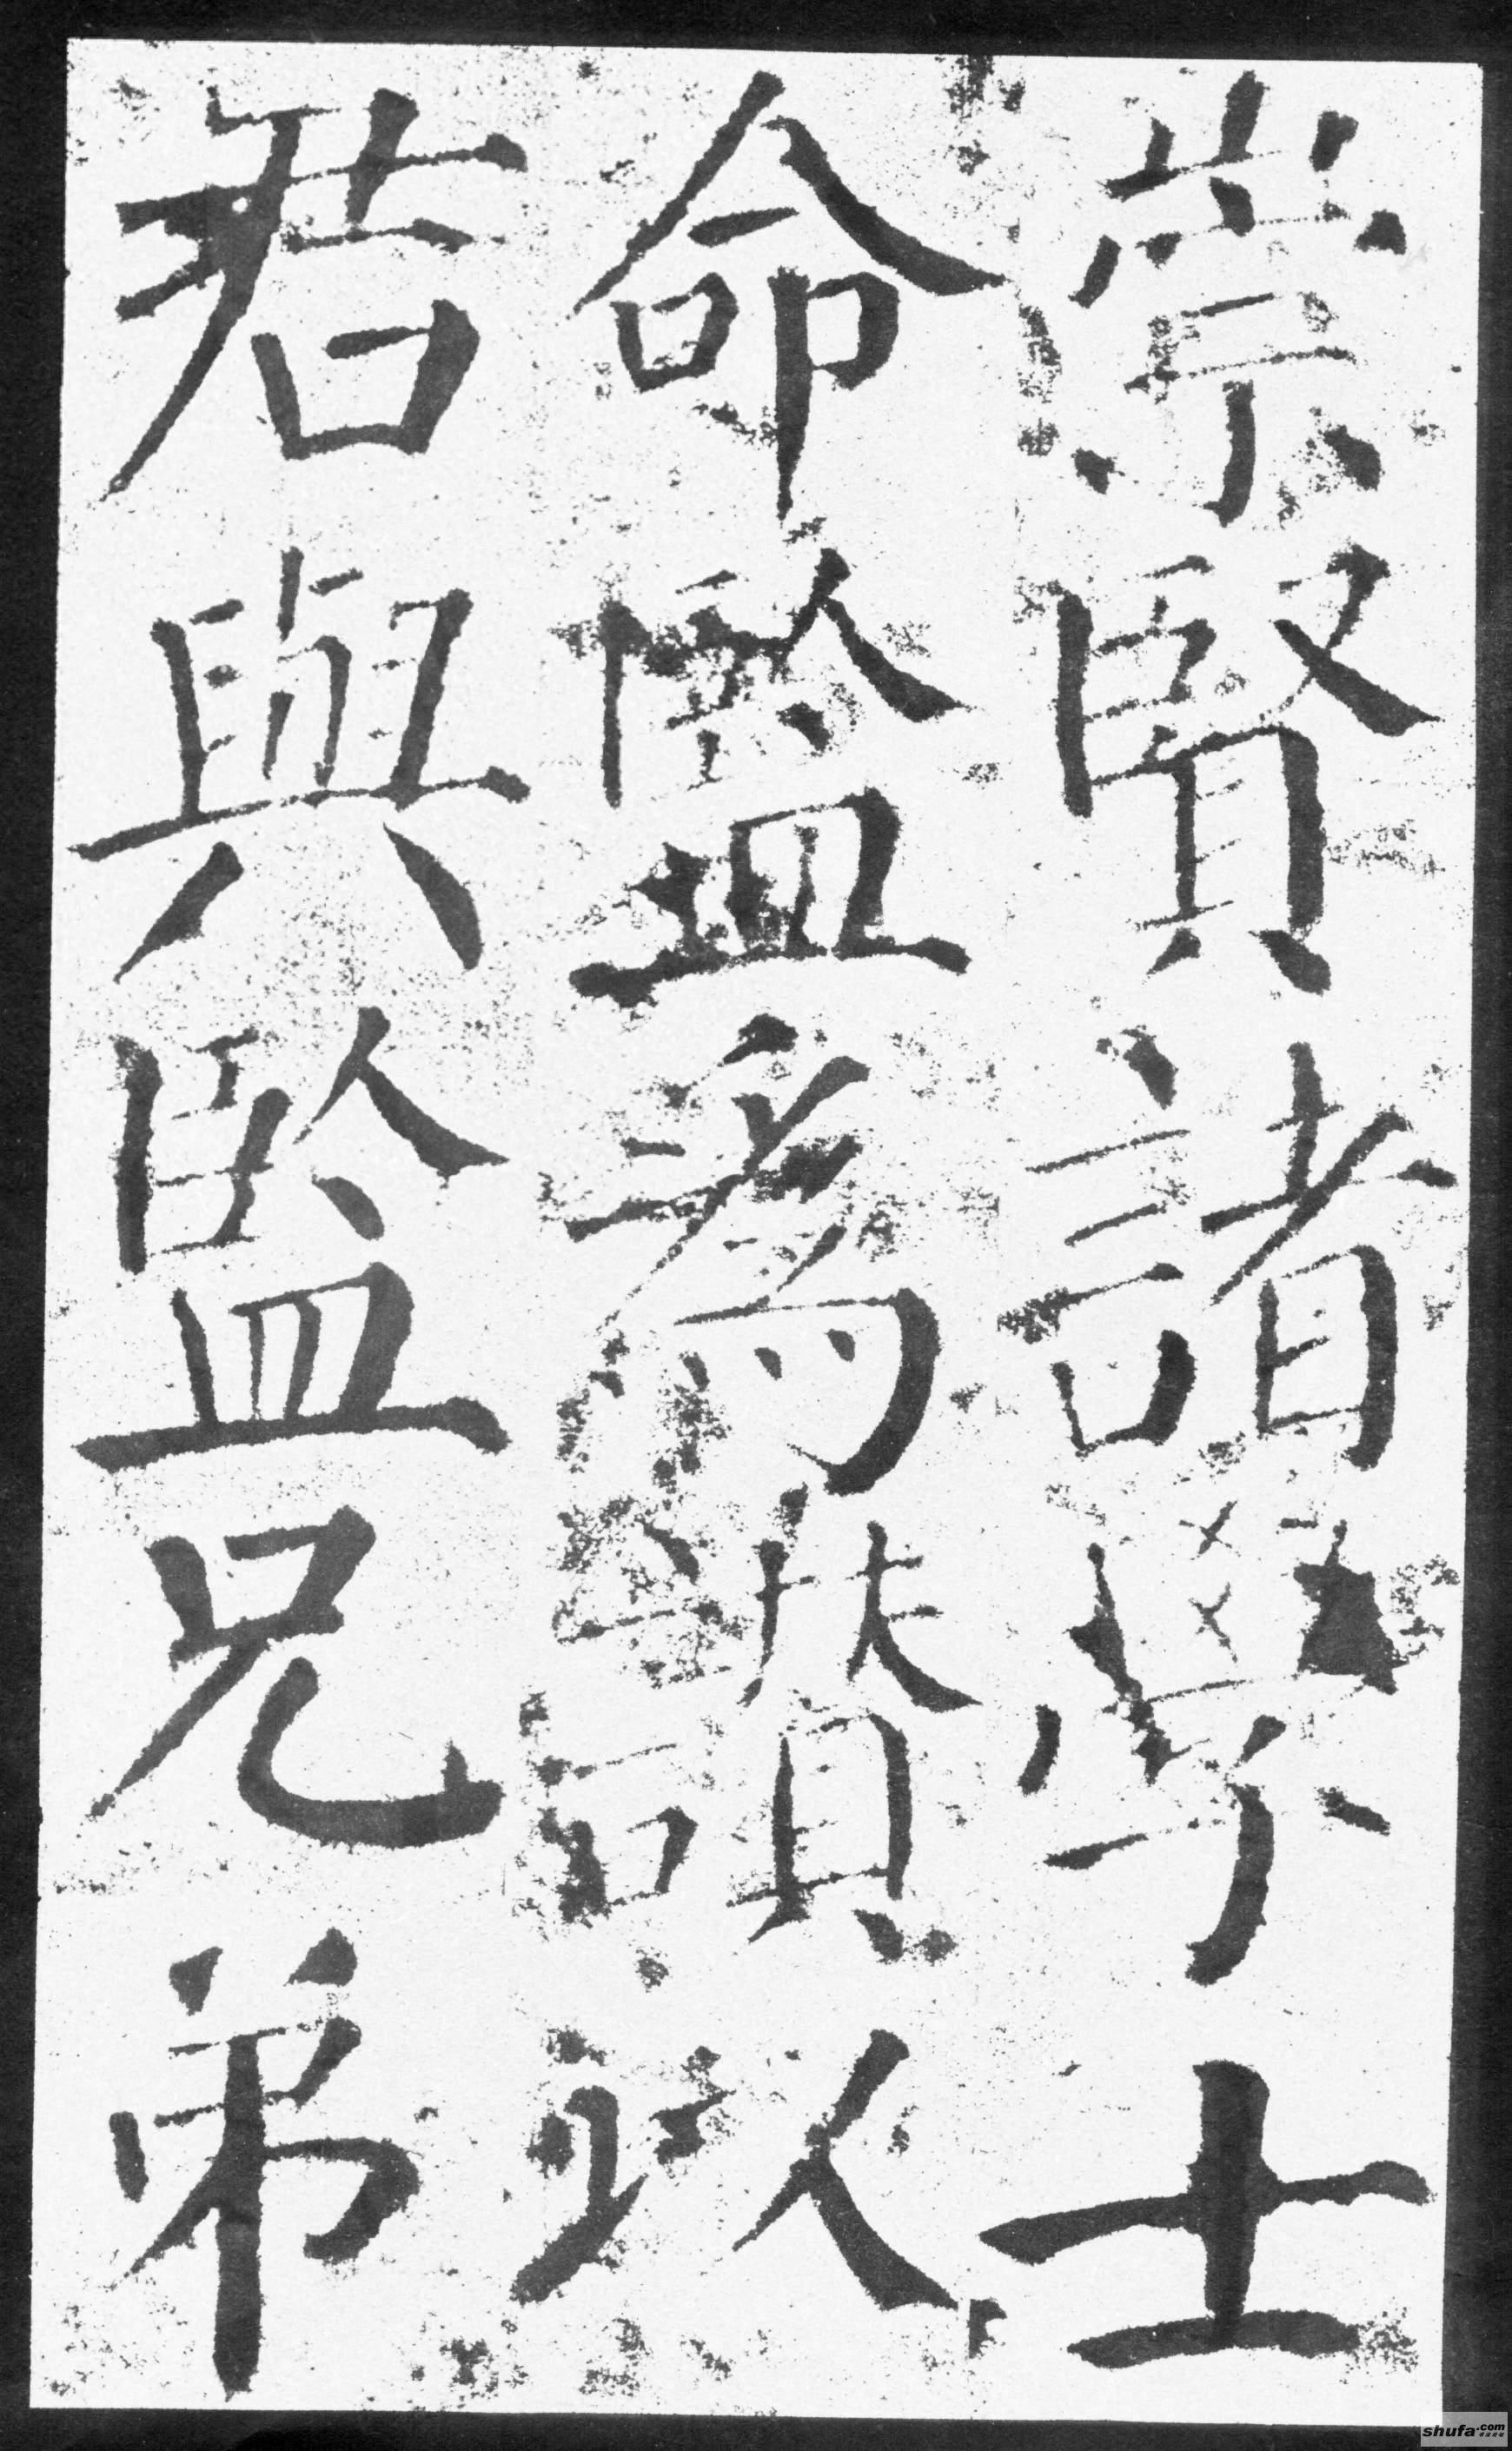 崇賢諸學士
命監爲讃以
君與監兄弟
shufa.com